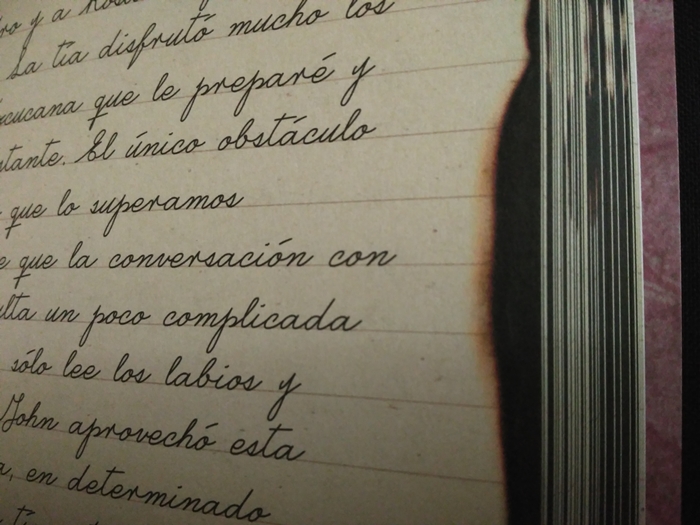 ro y a
La tía disfrutó mucho los
que le preparé y
El único obstáculo
que lo superamos
que la conversación con
un poco complicada
sólo lee los labios y
John aprovechó esta
en determinado